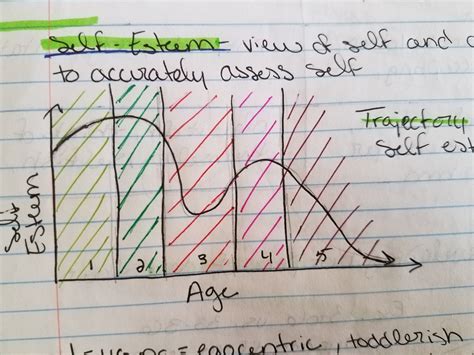 Self-Esteem - view of self and
to accurately assess self
Trajectory
self est
Self
Esteem
1 2 3 4 5
Age
= egocentric, toddlerish